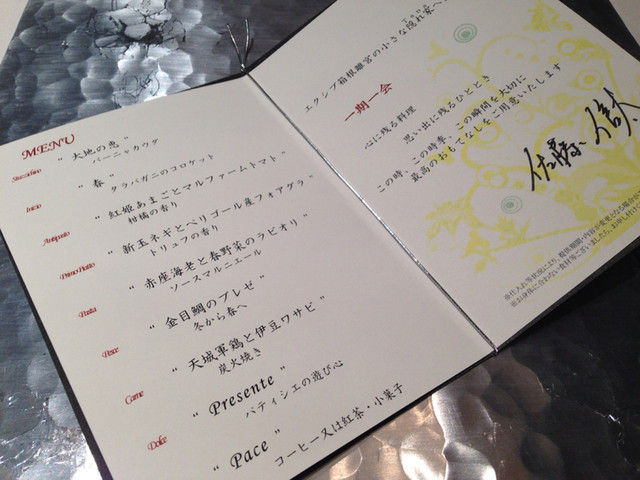 MENU
Stuzzichino
“ 大地の恵 ”
バーニャカウダ
Inizio
“ 春 ”
タラバガニのコロケット
Antipasto
“ 紅姫あまごとマルファームトマト ”
柑橘の香り
Primo Piatto
“ 新玉ネギとペリゴール産フォアグラ ”
トリュフの香り
Pasta
“ 赤座海老と春野菜のラビオリ ”
ソースマルニエール
Pesce
“ 金目鯛のブレゼ ”
冬から春へ
Carne
“ 天城軍鶏と伊豆ワサビ ”
炭火焼き
Dolce
“ Presente ”
パティシエの遊び心
“ Pace ”
コーヒー又は紅茶・小菓子
エクシブ箱根離宮の小さな隠れ家へ
一期一会
心に残る料理
思い出に残るひととき
この時、この時季、この瞬間を大切に
最高のおもてなしをご用意いたします
佐藤 信
※仕入れ等状況により、提供期間・内容が変更となる場合が
※お身体に合わない食材等ございましたら、お申し付け